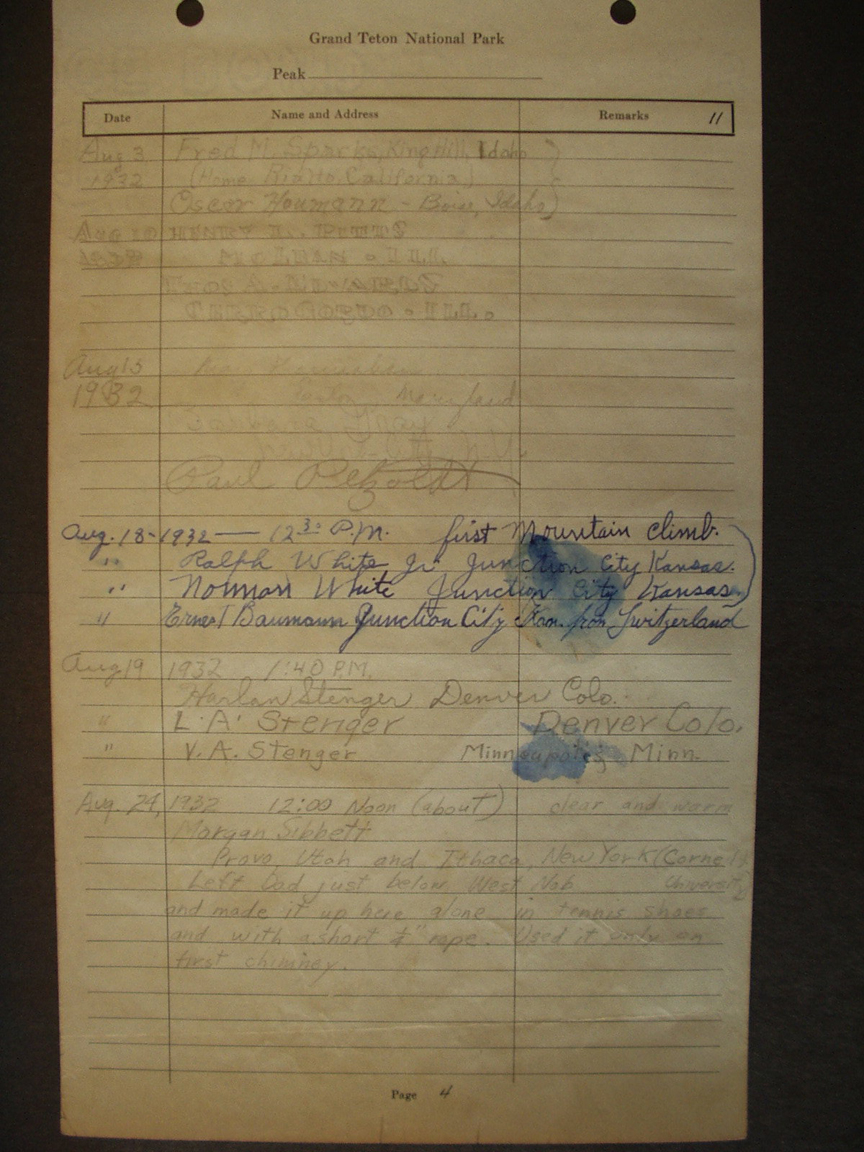 Grand Teton National Park
Peak
Date Name and Address Remarks 11
Aug 3 Fred M. Sparks, King Hill, Idaho
1932 (Home Rialto, California)
Oscar Houmann - Boise, Idaho
Aug 10 HENRY L. PITTS
1932 McLEAN . ILL
A. EDWARDS
CERRO GORDO . ILL.
Aug 15
1932 Easton, Maryland
Barbara Gray
N.Y.
Paul Petzoldt
Aug. 18-1932 — 12 30 P.M. first Mountain climb.
" Ralph White Jr. Junction City Kansas.
" Norman White Junction City Kansas.
" Ernest Baumann Junction City Kan. from Switzerland
Aug 19 1932 1:40 P.M.
Harlan Stenger Denver Colo.
" L. A. Stenger Denver Colo.
" V. A. Stenger Minneapolis Minn.
Aug. 24, 1932 12:00 Noon (about) clear and warm
Morgan Sibbett
Provo, Utah and Ithaca, New York (Cornell
Left Dad just below West Nob University)
and made it up here alone in tennis shoes
and with a short rope. Used it only on
first chimney.
Page 4